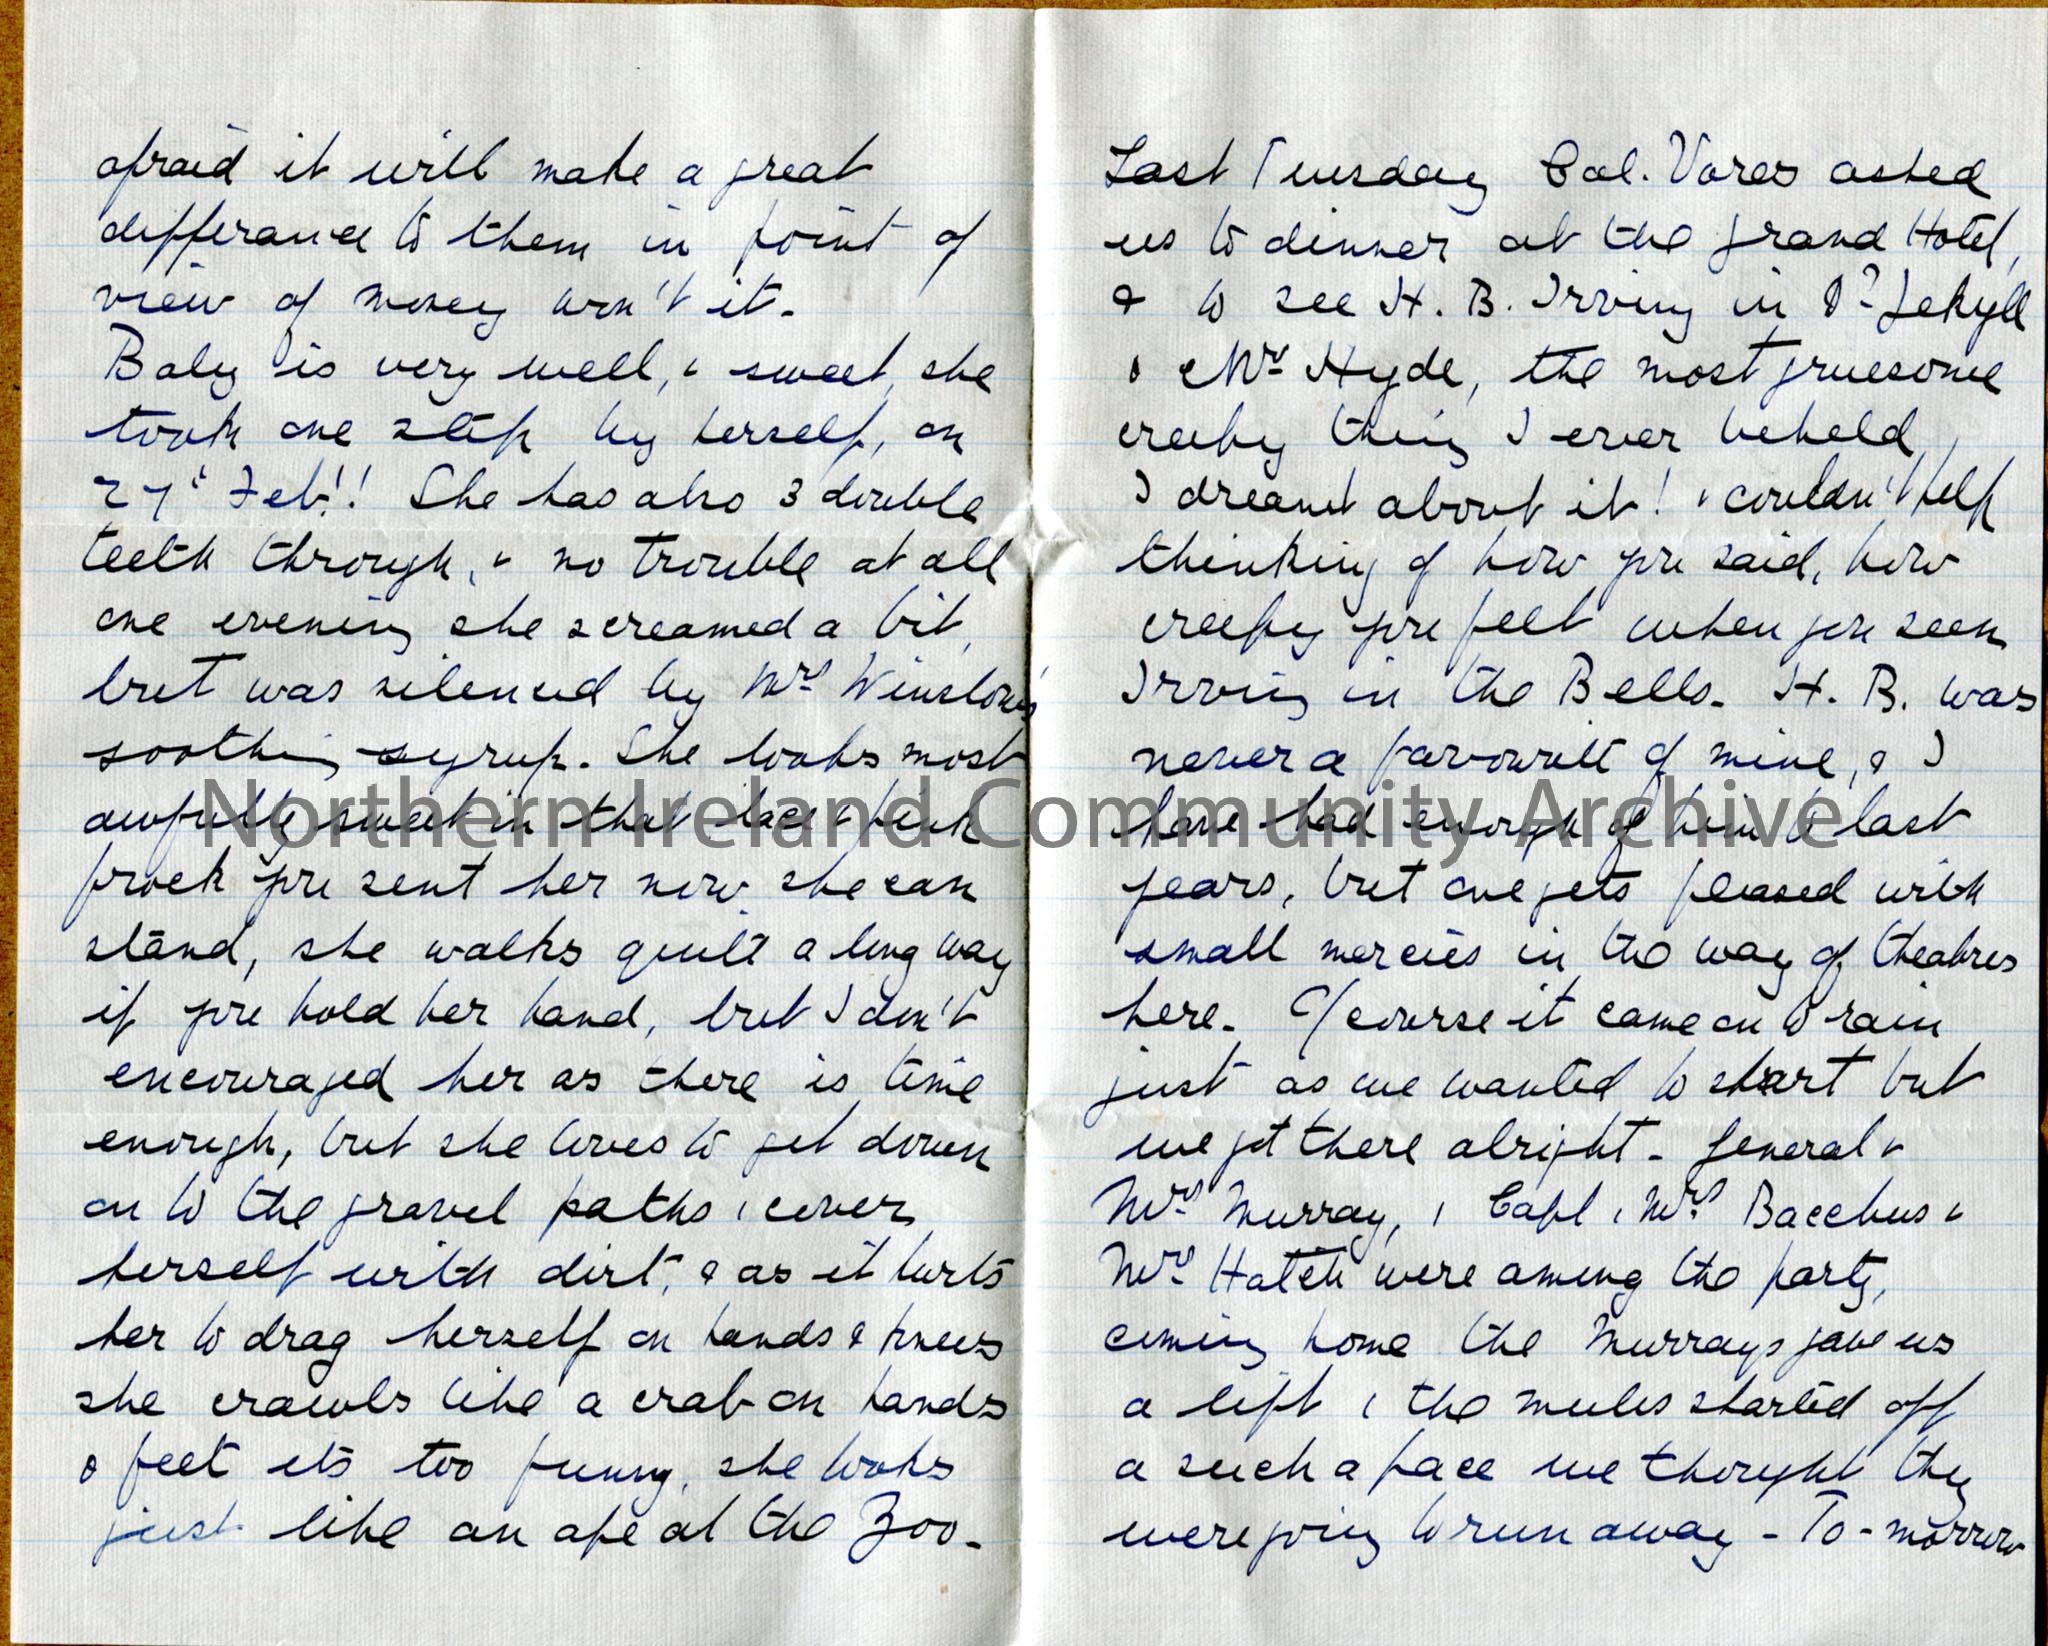 afraid it will make a great
differance to them in point of
view of money won't it.
Baby is very well, & sweet, she
took one step by herself, on
27th Feb!! She has also 3 double
teeth through, & no trouble at all
one evening she screamed a bit,
but was silenced by Mrs Winslows'
soothing syrup. She looks most
awfully sweet in that lace & pink
frock you sent her now she can
stand, she walks quite a long way
if you hold her hand, but I don't
encouraged her as there is time
enough, but she loves to get down
on to the gravel paths & cover
herself with dirt, & as it hurts
her to drag herself on hands & knees
she crawls like a crab on hands
& feet its too funny, she looks
just like an ape at the Zoo.
Last Tuesday Col. asked
us to dinner at the Grand Hotel,
& to see H. B. Irving in Dr Jekyll
& Mr Hyde, the most gruesome
creepy thing I ever beheld,
I dreamt about it! & couldn't help
thinking of how you said, how
creepy you felt when you seen
Irving in the Bells. H. B. was
never a favourite of mine, & I
have had enough of him to last
years, but one gets pleased with
small mercies in the way of theatres
here. Of course it came on to rain
just as we wanted to start but
we got there alright - General &
Mrs Murray, & Capt & Mrs Bacchus &
Mrs Hatch were among the party,
coming home the Murrays gave us
a lift & the mules started off
a such a pace we thought they
were going to run away - To-morrow
Northern Ireland Community Archive